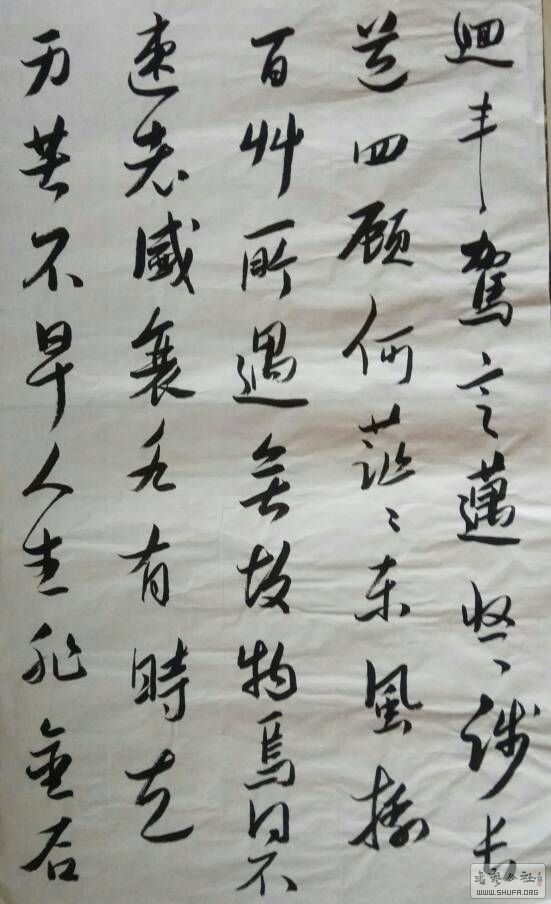 迴车駕言邁悠々涉长
道四顾何茫々东風摇
百艸所遇无故物焉得不
速老盛衰各有時立
身苦不早人生非金石
書藝公社
WWW.SHUFA.ORG